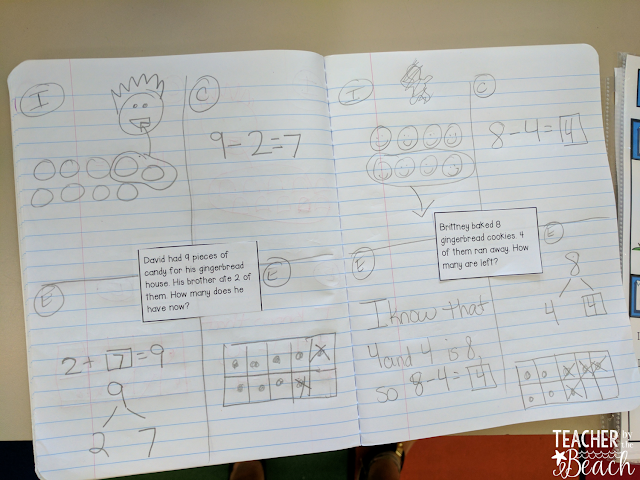 I
C
9-2=7
David had 9 pieces of
candy for his gingerbread
house. His brother ate 2 of
them. How many does he
have now?
E
2+7=9
9
2 7
E
I
C
8-4=4
Brittney baked 8
gingerbread cookies. 4
of them ran away. How
many are left?
E
I know that
4 and 4 is 8,
so 8-4=4
E
8
4 4
TEACHER
BY THE
BEACH